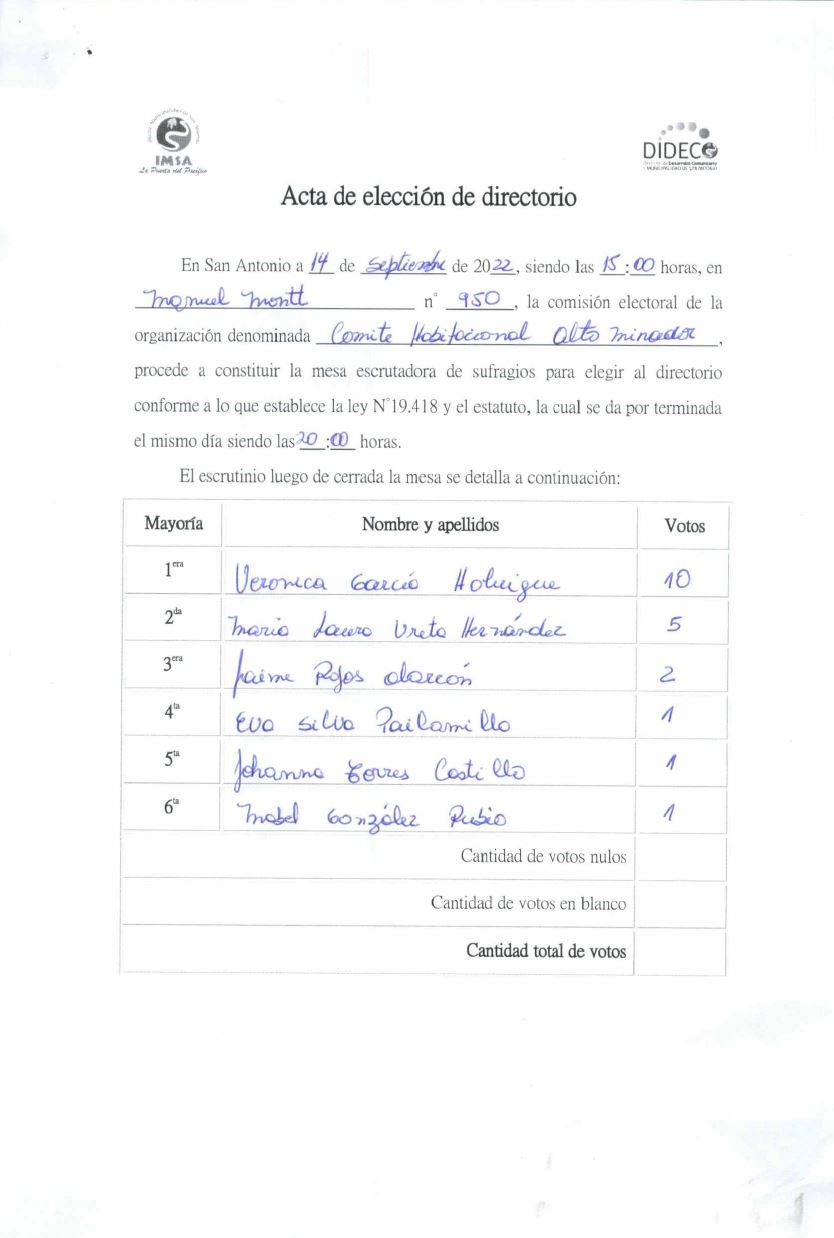 IMSA
La Puerta del Pacífico
DIDECO
Acta de elección de directorio
En San Antonio a 14 de Septiembre de 2022, siendo las 15:00 horas, en
Manuel Montt n° 950, la comisión electoral de la
organización denominada Comite Habitacional Alto Mirador,
procede a constituir la mesa escrutadora de sufragios para elegir al directorio
conforme a lo que establece la ley N°19.418 y el estatuto, la cual se da por terminada
el mismo día siendo las 20:00 horas.
El escrutinio luego de cerrada la mesa se detalla a continuación:
Mayoría Nombre y apellidos Votos
1era Veronica García 10
2da Maria Laura Ureta Hernández 5
3era Jaime Rojas Alarcón 2
4ta Eva Silva Pailamillo 1
5ta Johanna Torres Castillo 1
6ta Mabel González Rubio 1
Cantidad de votos nulos
Cantidad de votos en blanco
Cantidad total de votos